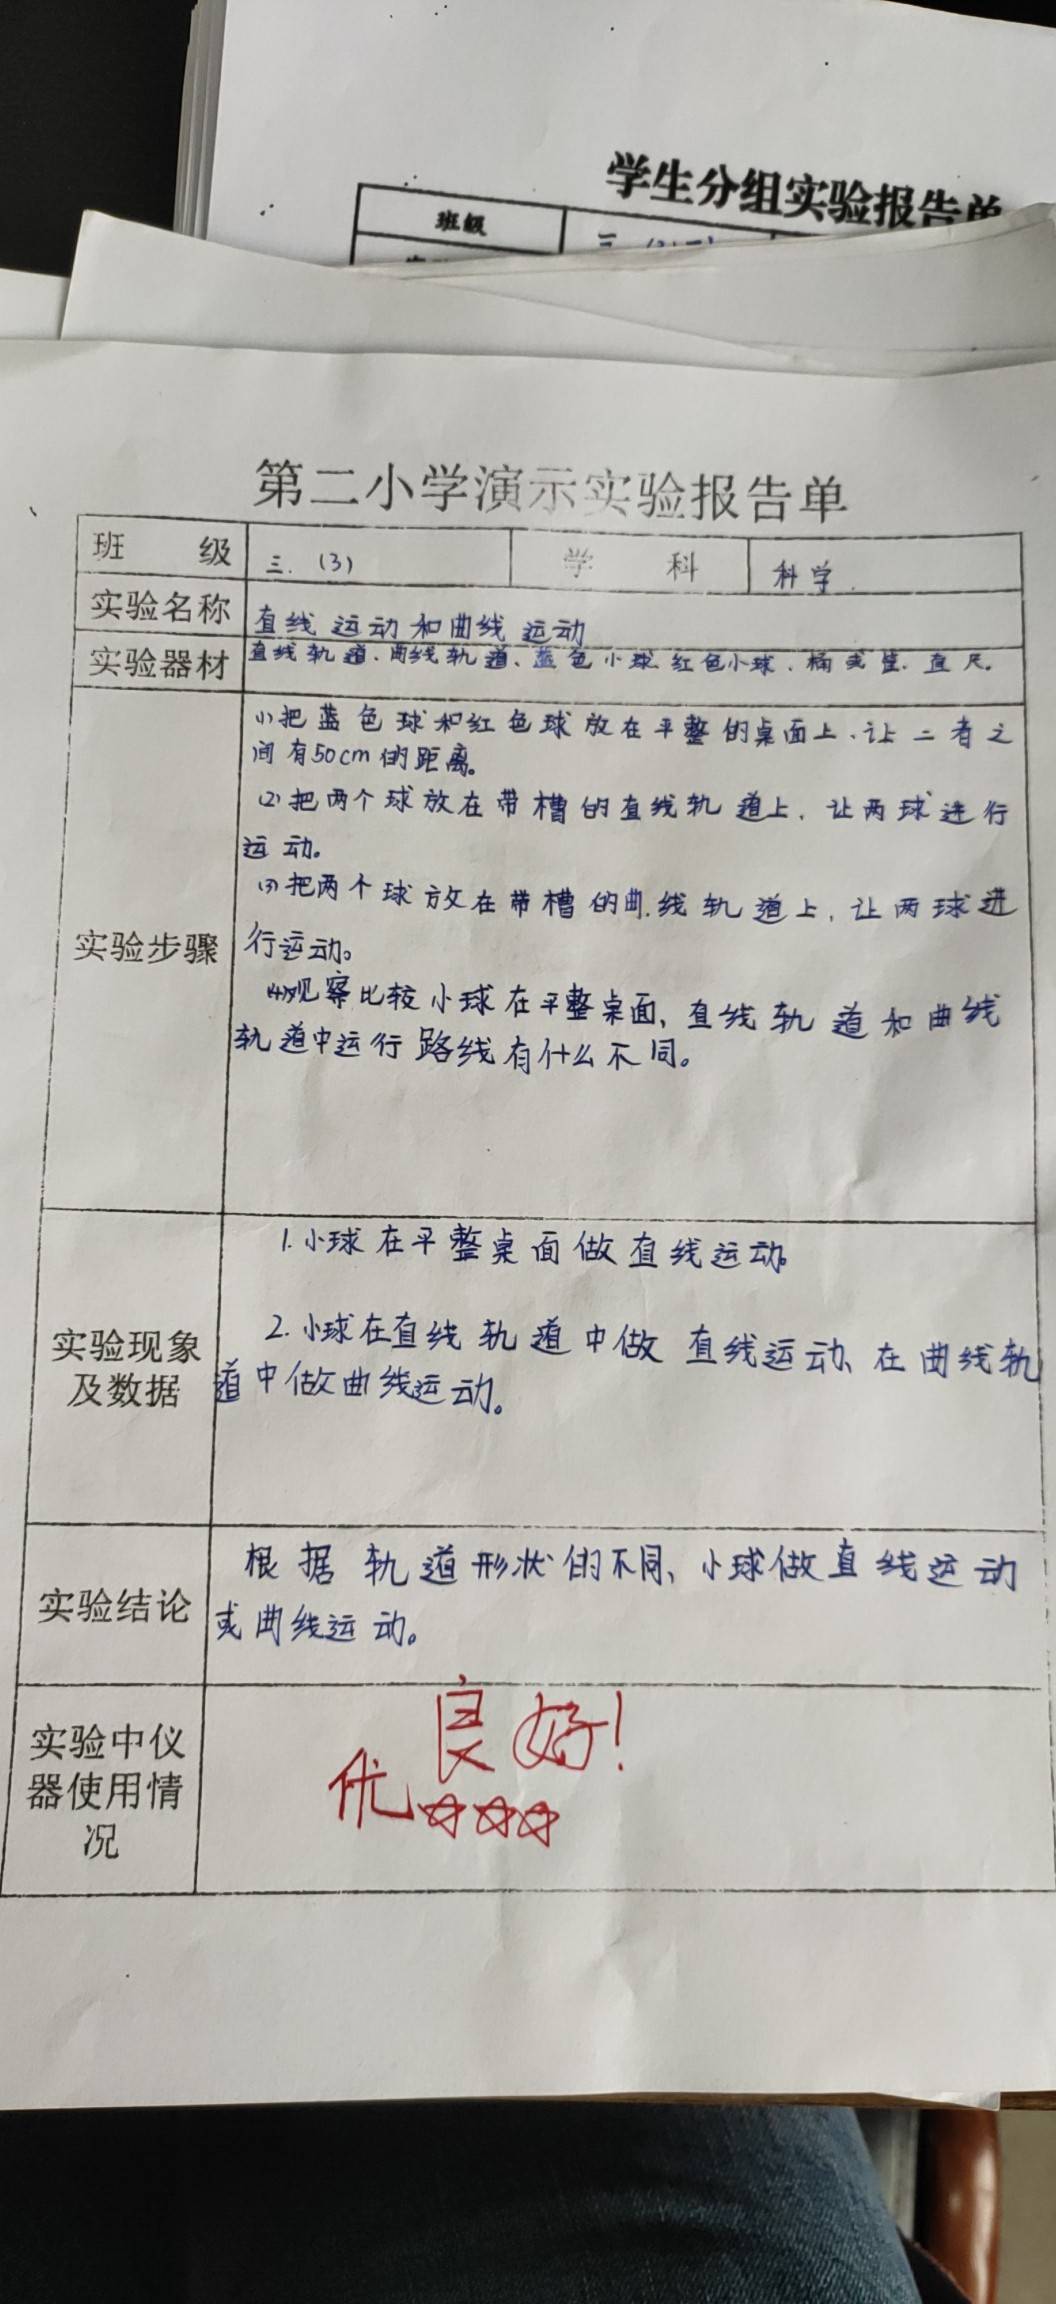 学生分组实验报告单
班级
第二小学演示实验报告单
班 级 三.(3) 学 科 科学
实验名称 直线运动和曲线运动
实验器材 直线轨道、曲线轨道、蓝色小球 红色小球、桶或筐、直尺。
(1)把蓝色球和红色球放在平整的桌面上、让二者之
间有50cm的距离。
(2)把两个球放在带槽的直线轨道上,让两球进行
运动。
(3)把两个球放在带槽的曲线轨道上,让两球进
实验步骤 行运动。
(4)观察比较小球在平整桌面、直线轨道和曲线
轨道中运行路线有什么不同。
1.小球在平整桌面做直线运动。
实验现象 2.小球在直线轨道中做直线运动、在曲线轨
及数据 道中做曲线运动。
根据轨道形状的不同、小球做直线运动
实验结论 或曲线运动。
良好!
实验中仪
器使用情 优☆☆☆
况